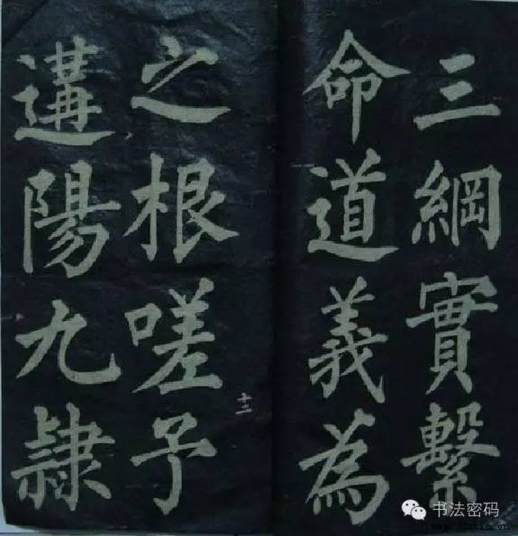 三綱實繫
命道義為
之根嗟予
遘陽九隷
十二
书法密码